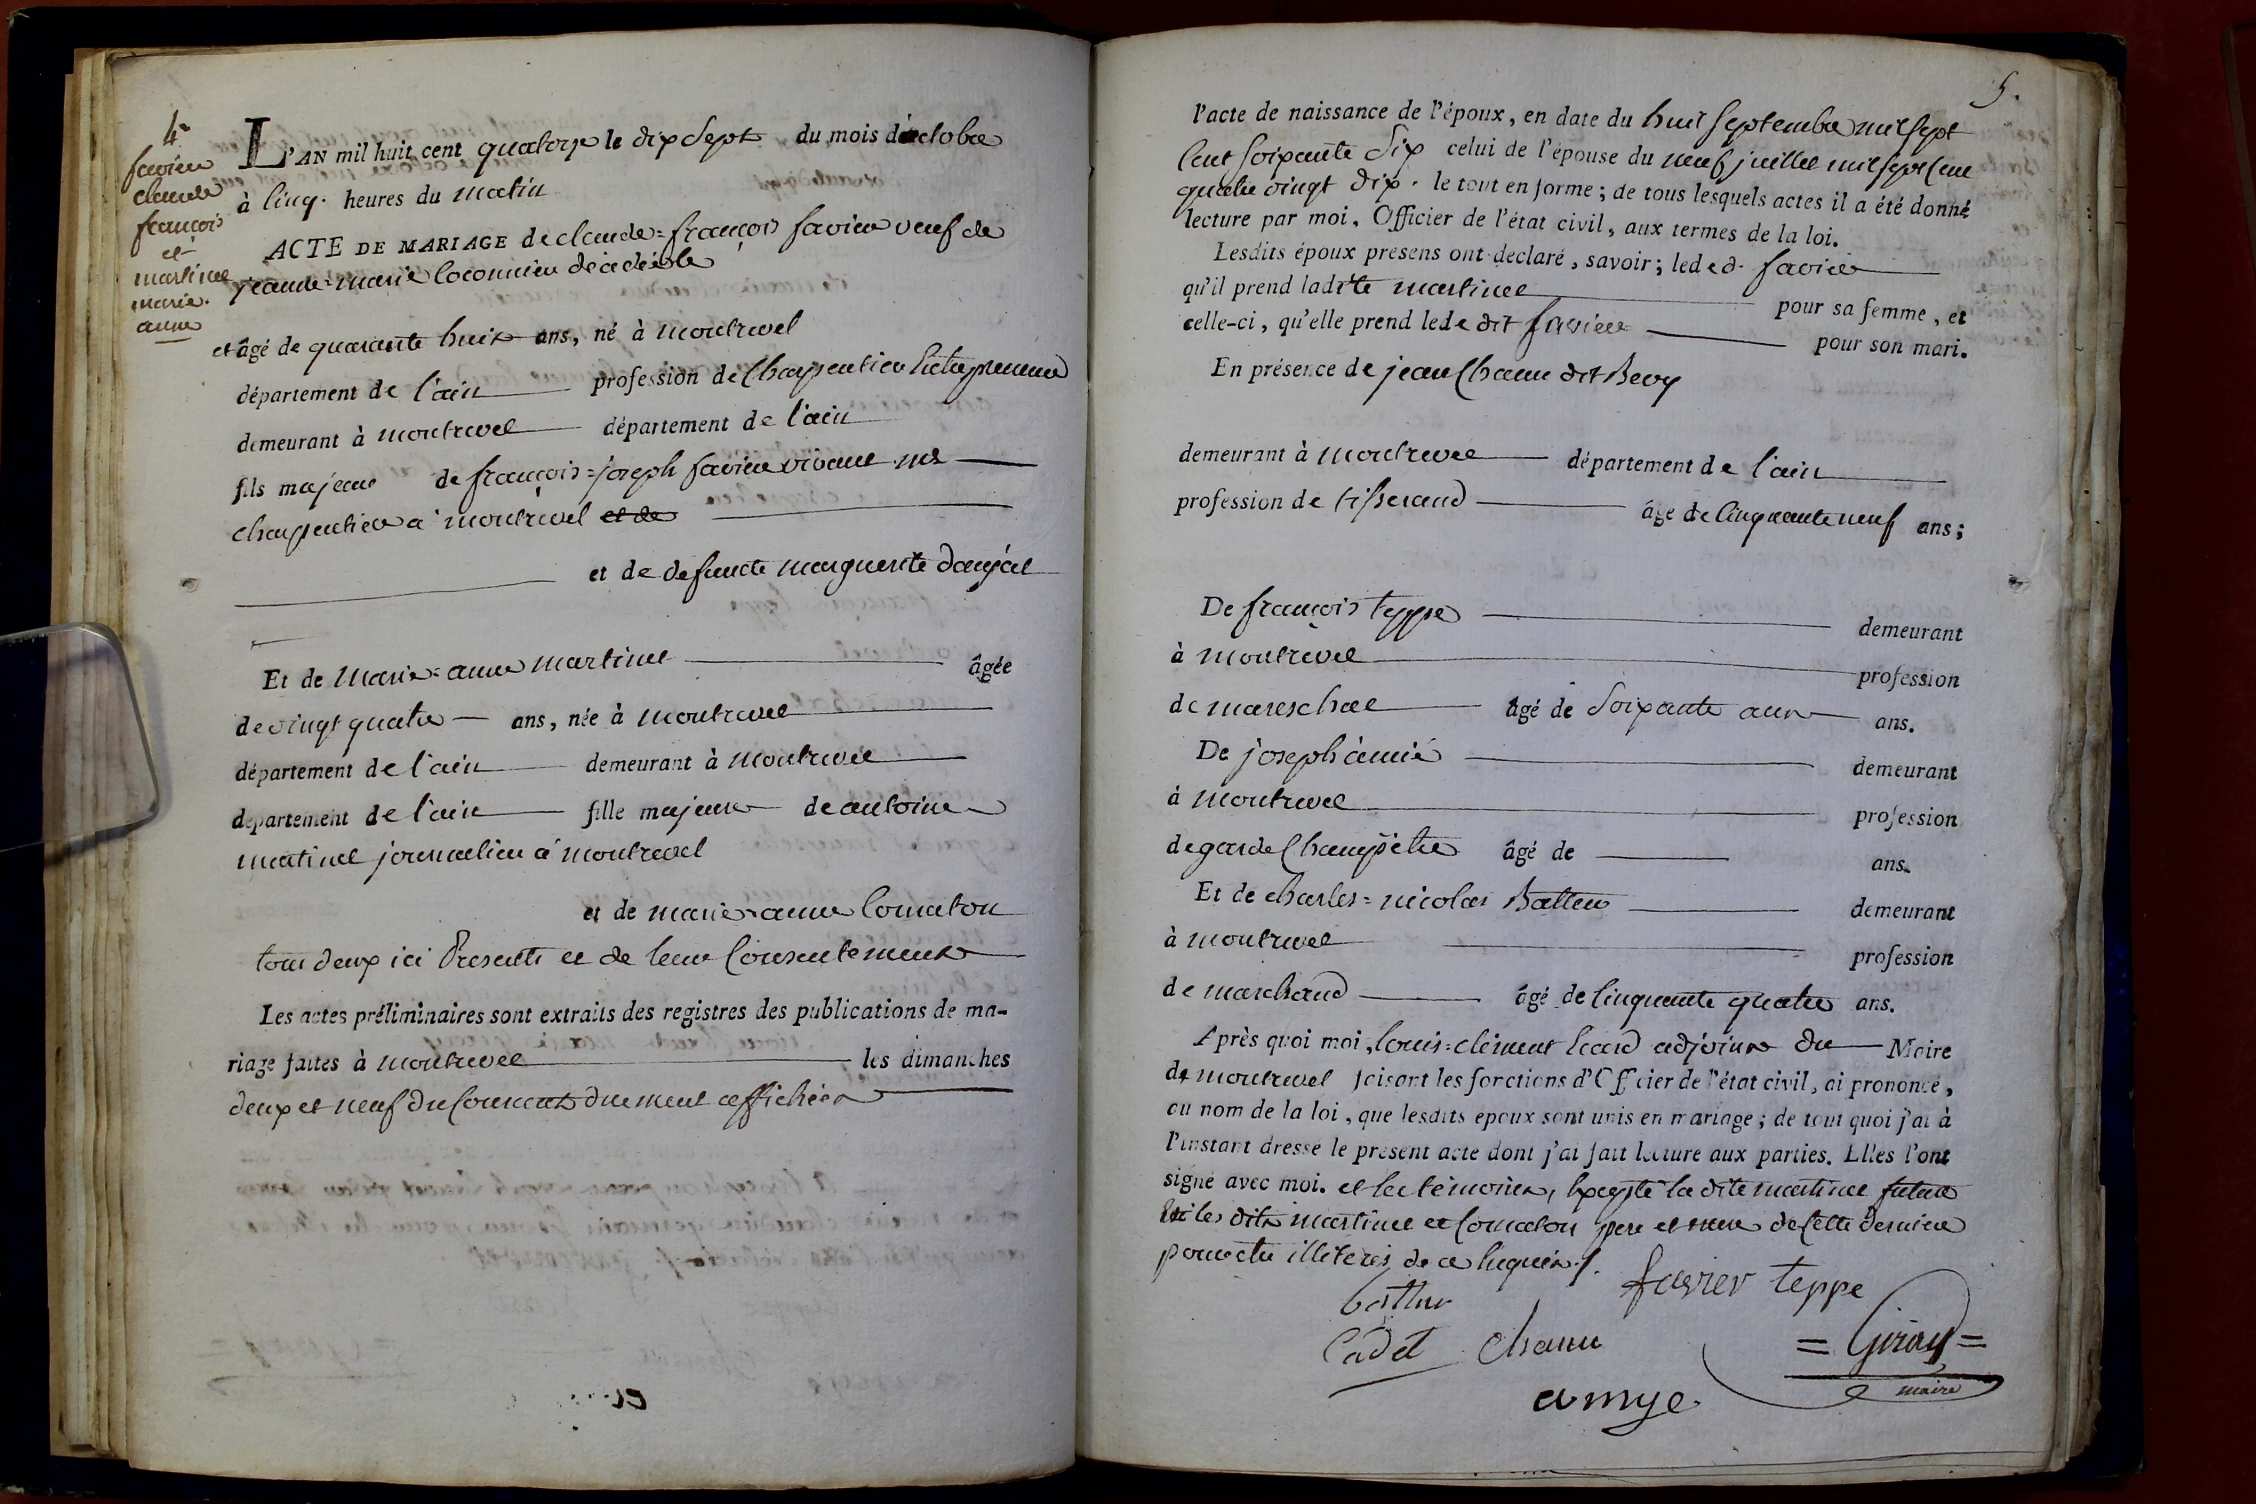 4e
favier
claude
françois
et
martinet
marie
anne
L'AN mil huit cent quatorze le dix sept du mois d'octobre
à cinq heures du matin
ACTE DE MARIAGE de claude=françois favier veuf de
jeanne=marie décédée
et âgé de quarante huit ans, né à montrevel
département de l'ain profession de Charpentier Entrepreneur
demeurant à montrevel département de l'ain
fils majeur de françois=joseph favier vivant me
charpentier à montrevel et de
et de defuncte marguerite
Et de Marie=anne martinet âgée
de vingt quatre ans, née à montrevel
département de l'ain demeurant à montrevel
département de l'ain fille majeure de antoine
martinet journalier à montrevel
et de marie=anne Comaton
tous deux ici Presents et de leur Consentement
Les actes préliminaires sont extraits des registres des publications de ma-
riage faites à montrevel les dimanches
deux et neuf du Courant duement affichées
5.
l'acte de naissance de l'époux, en date du huit septembre mil sept
Cent soixante six celui de l'épouse du neuf juillet mil sept Cent
quatre vingt dix. le tout en forme; de tous lesquels actes il a été donné
lecture par moi, Officier de l'état civil, aux termes de la loi.
Lesdits époux présens ont déclaré, savoir; led ed. favier
qu'il prend ladite martinet pour sa femme, et
celle-ci, qu'elle prend lede dit favier pour son mari.
En présence de jean Chanu dit Bevy
demeurant à montrevel département de l'ain
profession de tisserand âgé de Cinquante neuf ans;
De françois teppe demeurant
à montrevel profession
de mareschal âgé de soixante ans.
De joseph amié demeurant
à montrevel profession
de garde Champêtre âgé de ans.
Et de charles=nicolas Battur demeurant
à montrevel profession
de marchand âgé de Cinquante quatre ans.
Après quoi moi, louis=clément adjoint du Maire
de montrevel faisant les fonctions d'Officier de l'état civil, ai prononcé,
au nom de la loi, que lesdits époux sont unis en mariage; de tout quoi j'ai à
l'instant dressé le présent acte dont j'ai fait lecture aux parties. Elles l'ont
signé avec moi. et les témoins, Excepté la dite martinet future
Et les dits martinet et Comaton pere et mere de Cette derniere
pour etre illiterés de ce Requis.
favier teppe
battur
Cadet chanu = Giraud =
maire
amye